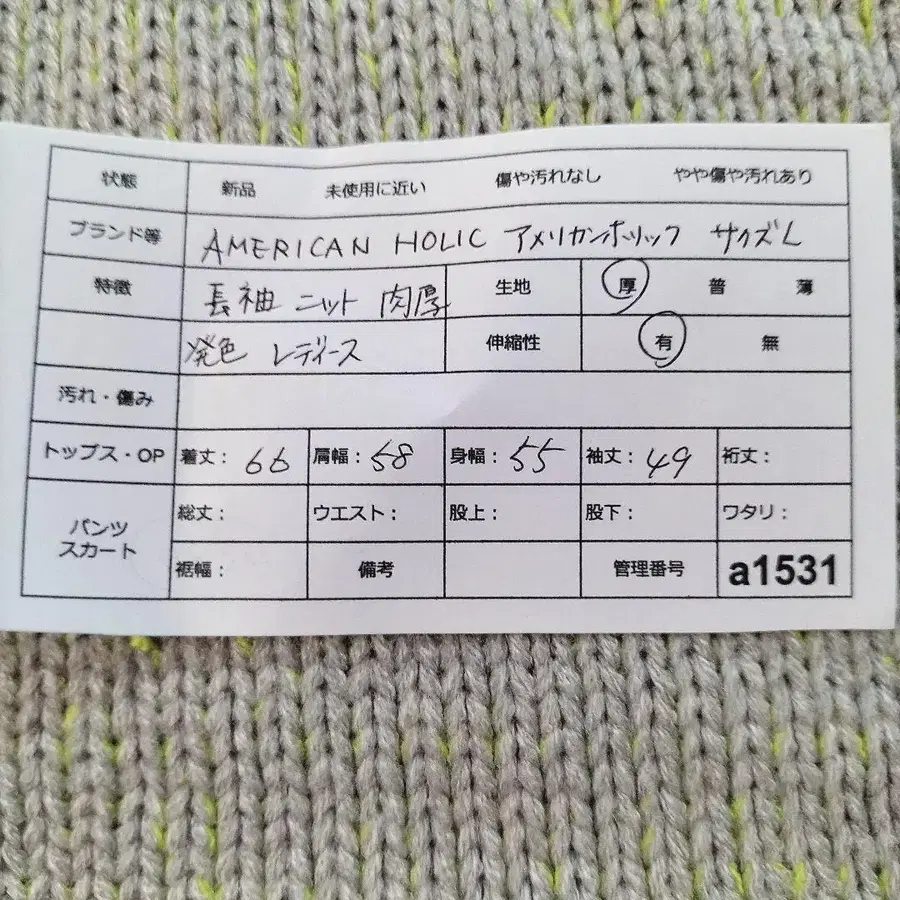 状態 新品 未使用に近い 傷や汚れなし やや傷や汚れあり
ブランド等 AMERICAN HOLIC アメリカンホリック サイズL
特徴 長袖 ニット 肉厚 生地 厚 普 薄
発色 レディース 伸縮性 有 無
汚れ・傷み
トップス・OP 着丈: 66 肩幅: 58 身幅: 55 袖丈: 49 裄丈:
パンツ スカート 総丈: ウエスト: 股上: 股下: ワタリ:
裾幅: 備考 管理番号 a1531